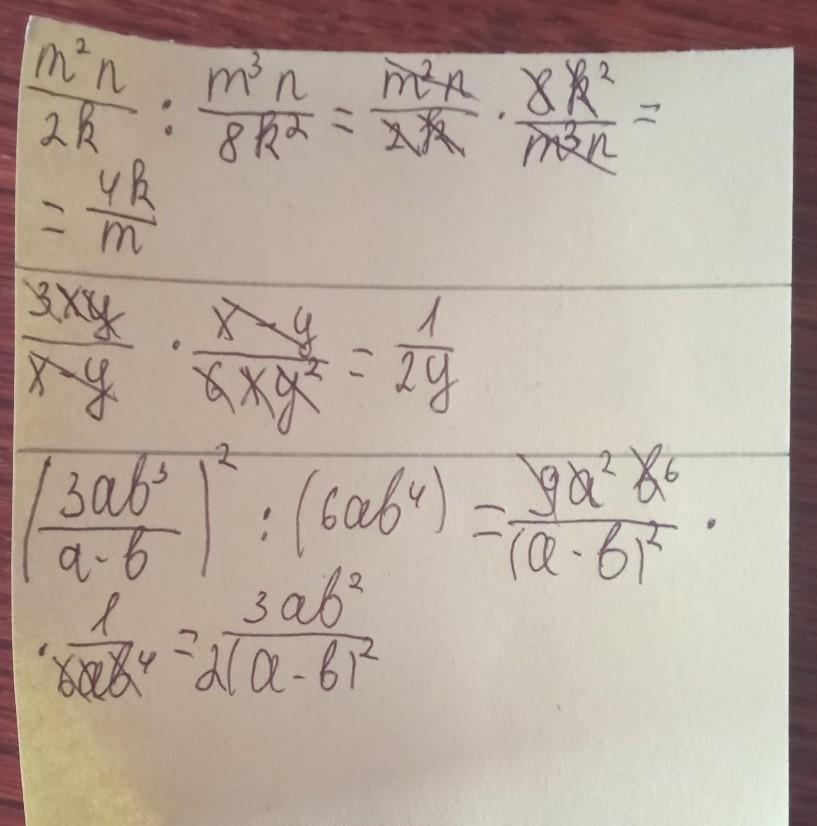 m²n/2k : m³n/8k² = m²n/2k · 8k²/m³n =
= 4k/m
3xy/x-y · x-y/6xy² = 1/2y
(3ab³/a-b)² : (6ab⁴) = 9a²b⁶/(a-b)² ·
· 1/6ab⁴ = 3ab²/2(a-b)²